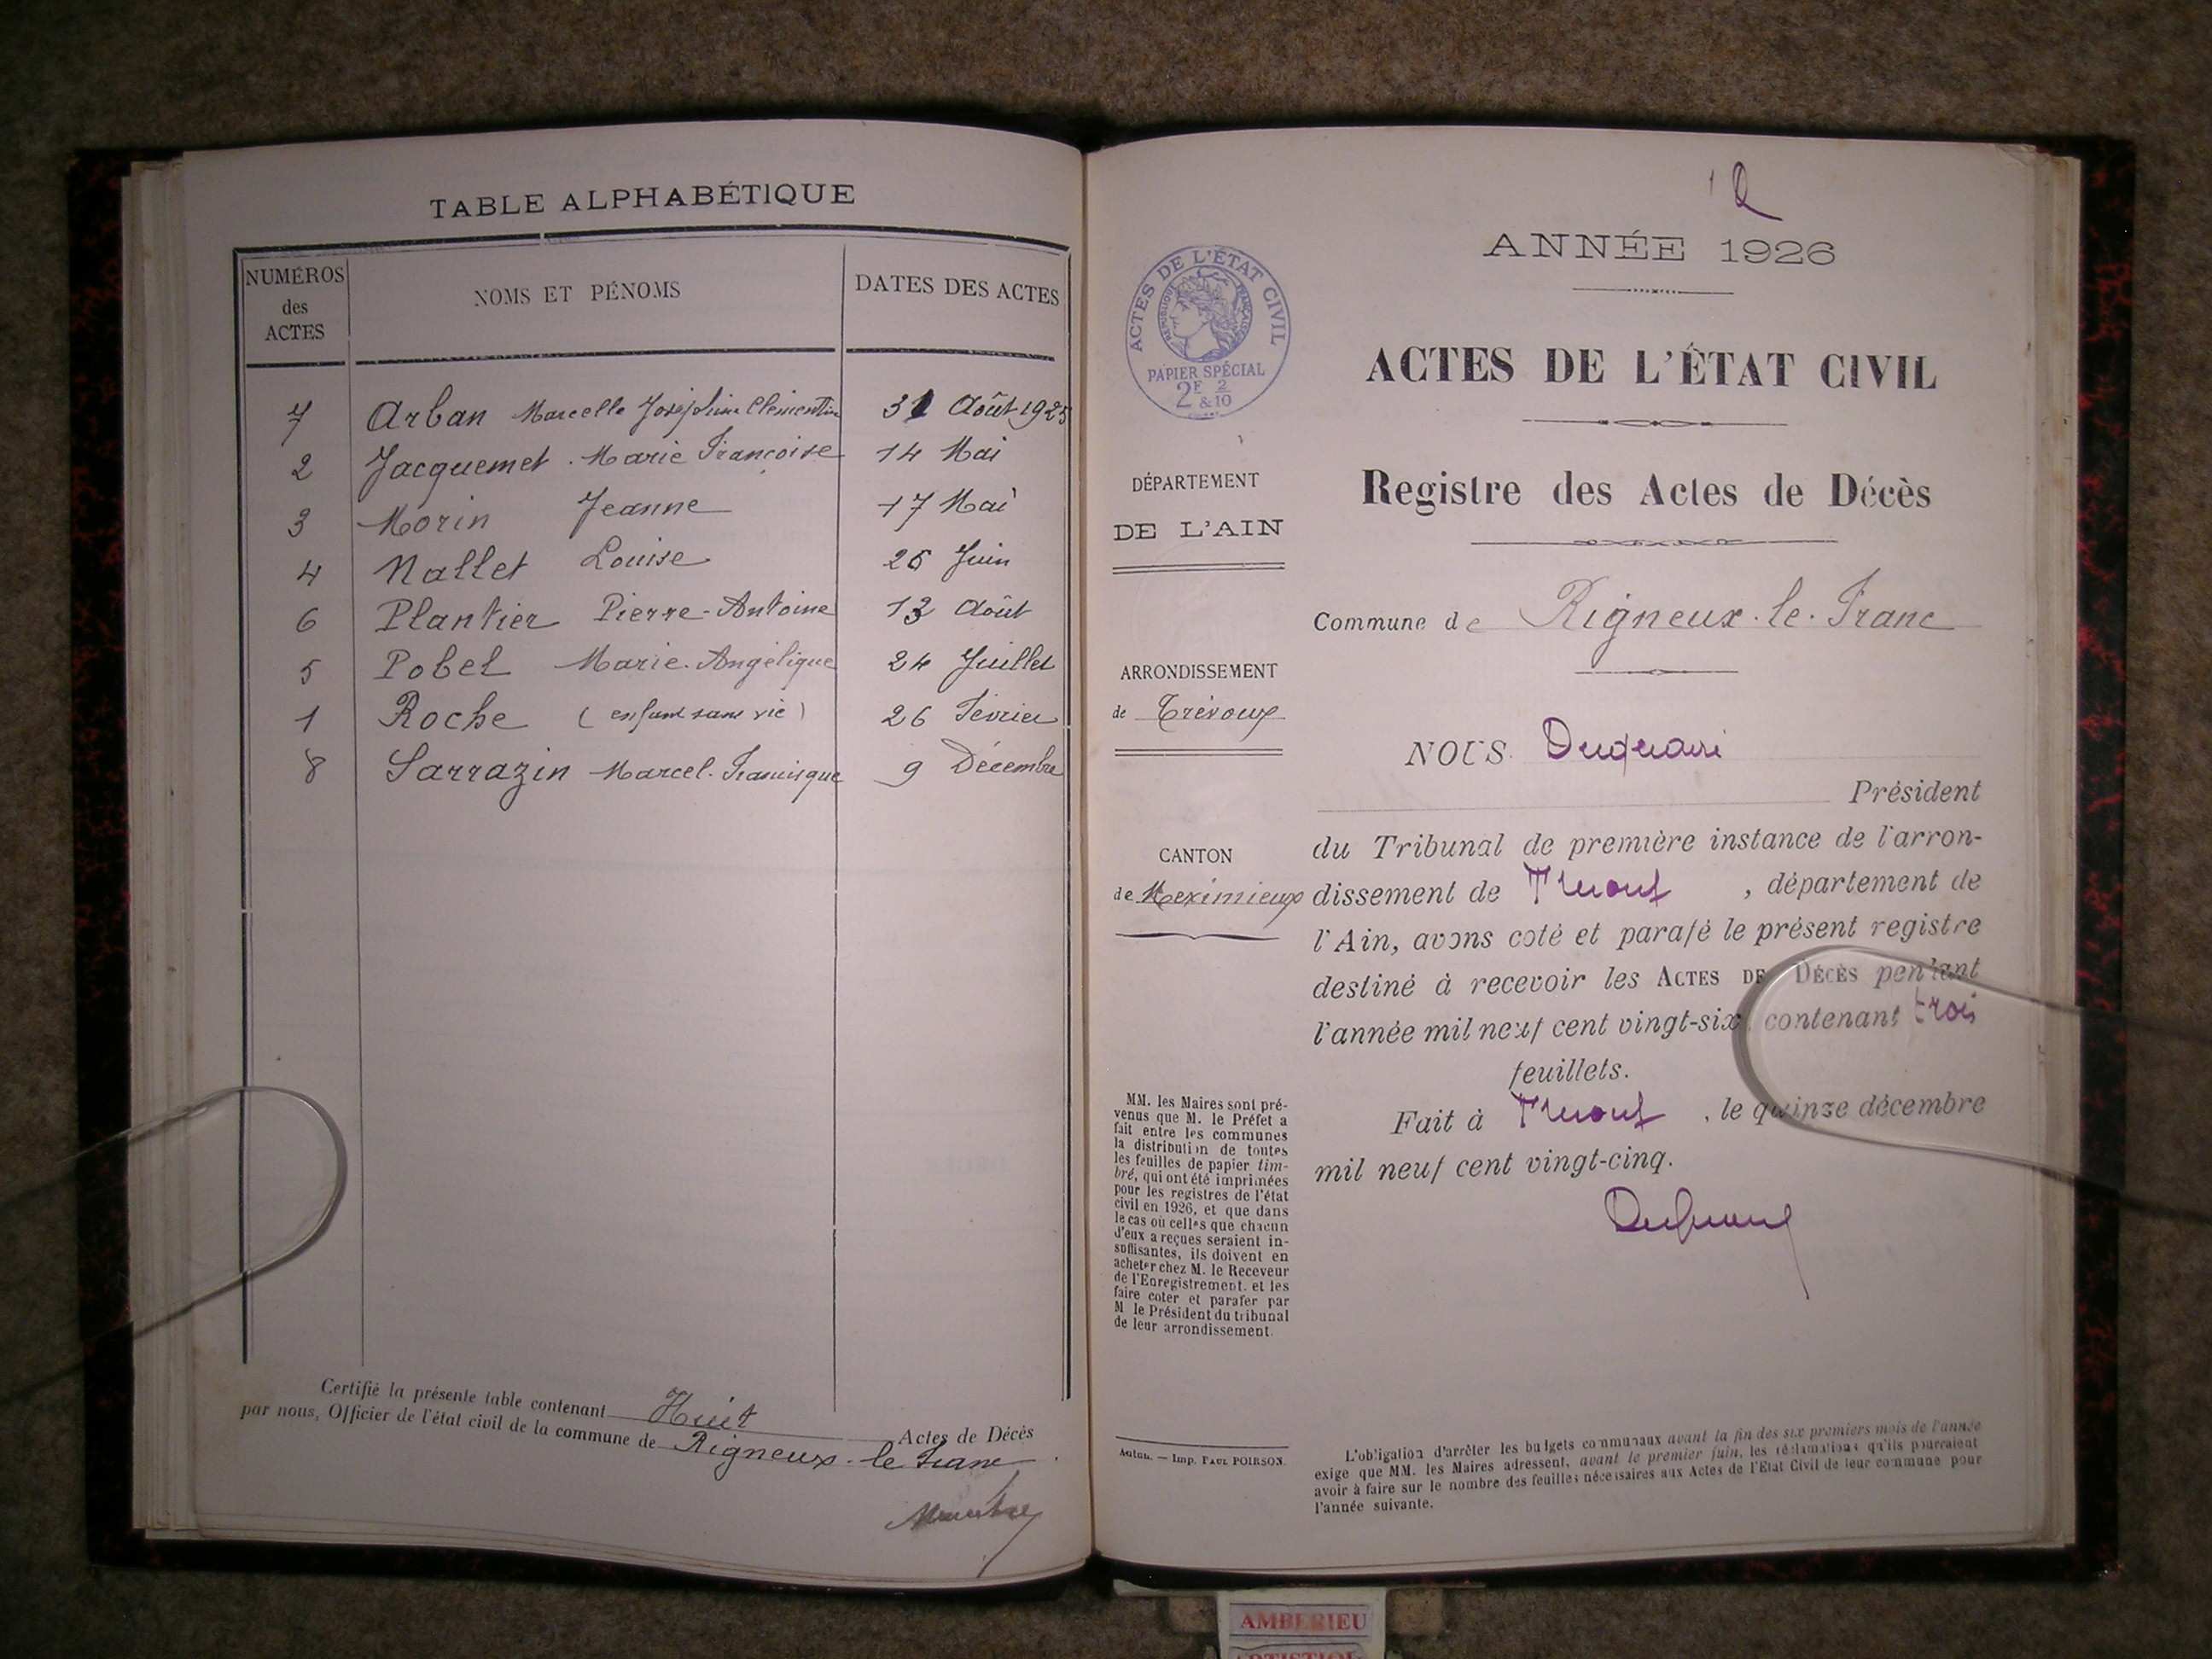 TABLE ALPHABÉTIQUE
NUMÉROS des ACTES
NOMS ET PÉNOMS
DATES DES ACTES
7 Arban Marcelle Joséphine Clémentine 31 Août 1925
2 Jacquemet Marie Françoise 14 Mai
3 Morin Jeanne 17 Mai
4 Mallet Louise 26 Juin
6 Plantier Pierre-Antoine 13 Août
5 Pobel Marie-Angélique 24 Juillet
1 Roche (enfant sans vie) 26 Février
8 Sarrazin Marcel-Francisque 9 Décembre
Certifié la présente table contenant Huit Actes de Décès
par nous, Officier de l'état civil de la commune de Rigneux-le-Franc
ACTES DE L'ÉTAT CIVIL
RÉPUBLIQUE FRANÇAISE
PAPIER SPÉCIAL
2F 2
&10
DÉPARTEMENT
DE L'AIN
ARRONDISSEMENT
de Trévoux
CANTON
de Meximieux
MM. les Maires sont pré-
venus que M. le Préfet a
fait entre les communes
la distribution de toutes
les feuilles de papier tim-
bré, qui ont été imprimées
pour les registres de l'état
civil en 1926, et que dans
le cas où celles que chacun
d'eux a reçues seraient in-
suffisantes, ils doivent en
acheter chez M. le Receveur
de l'Enregistrement, et les
faire coter et parafer par
M le Président du tribunal
de leur arrondissement.
Imp. PAUL POIRSON.
ANNÉE 1926
ACTES DE L'ÉTAT CIVIL
Registre des Actes de Décès
Commune de Rigneux-le-Franc
NOUS
Président
du Tribunal de première instance de l'arron-
dissement de Trévoux, département de
l'Ain, avons coté et parafé le présent registre
destiné à recevoir les ACTES DE DÉCÈS pendant
l'année mil neuf cent vingt-six, contenant trois
feuillets.
Fait à Trévoux, le quinze décembre
mil neuf cent vingt-cinq.
L'obligation d'arrêter les budgets communaux avant la fin des six premiers mois de l'année
exige que MM. les Maires adressent, avant le premier juin, les réclamations qu'ils pourraient
avoir à faire sur le nombre des feuilles nécessaires aux Actes de l'Etat Civil de leur commune pour
l'année suivante.
AMBERIEU